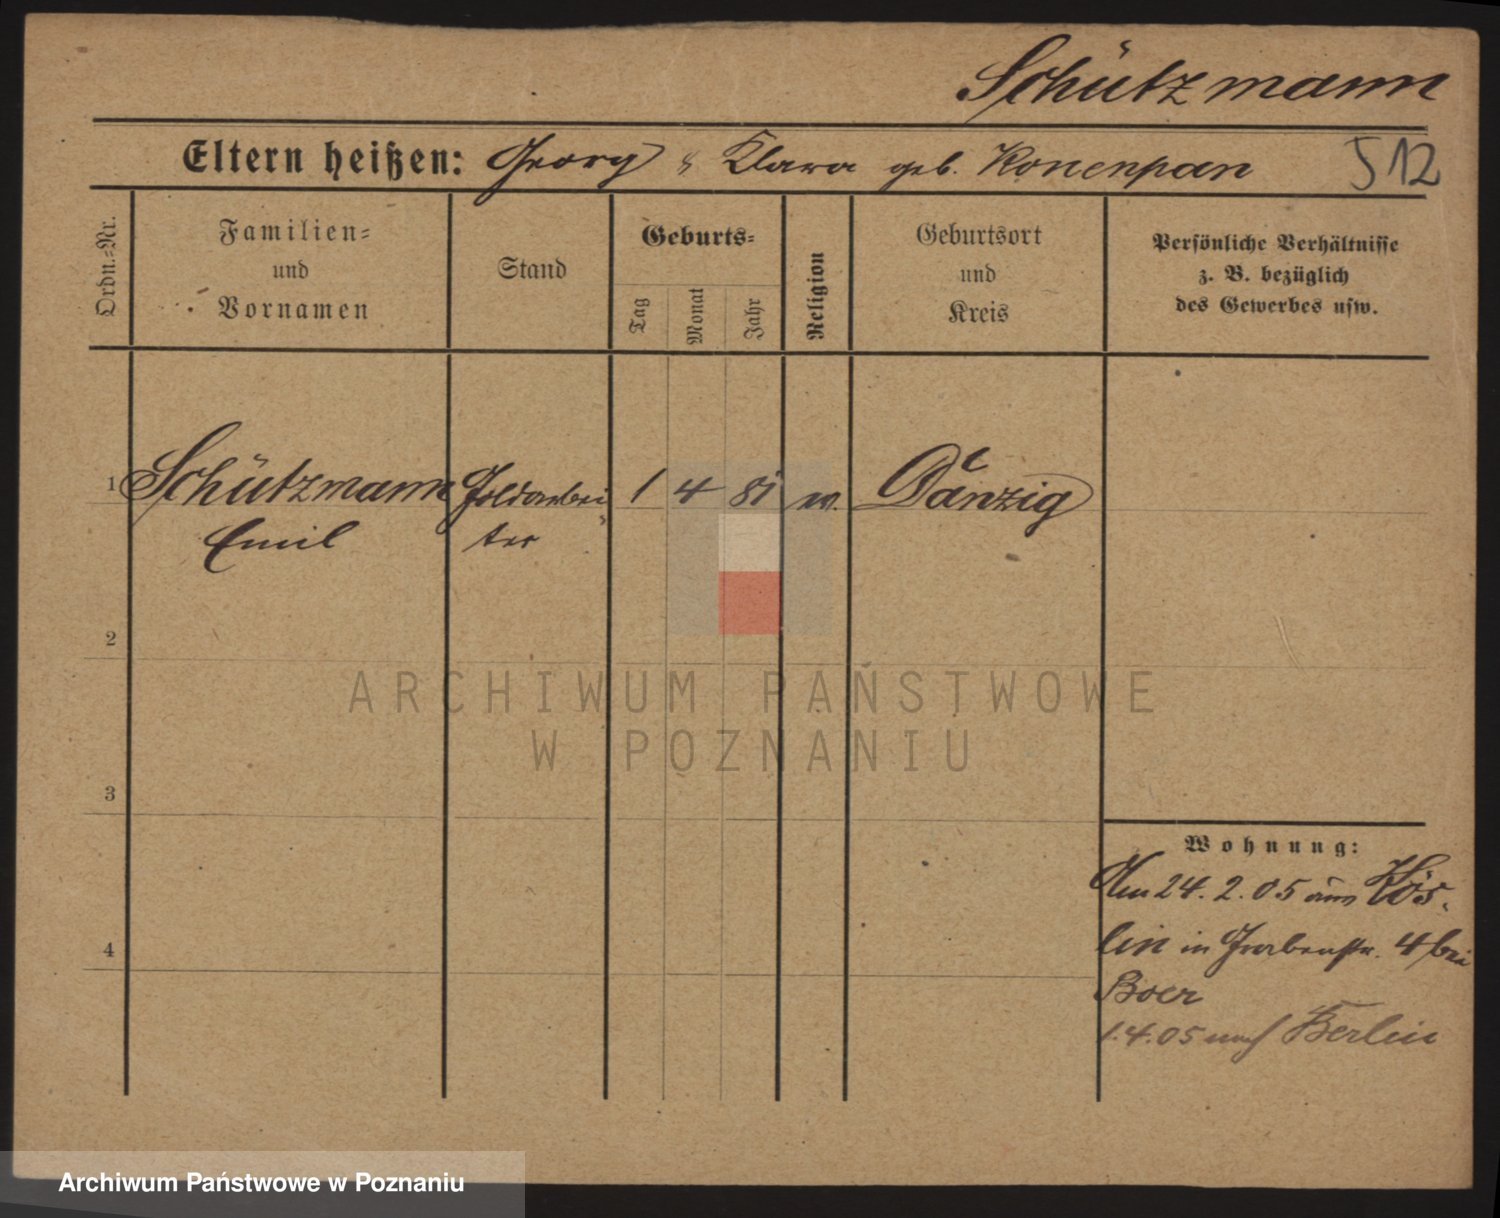 Schützmann
Eltern heißen: Georg u Klara geb. Konenpan
512
Ordn.-Nr.
Familien-
und
Vornamen
Stand
Geburts-
Tag
Monat
Jahr
Religion
Geburtsort
und
Kreis
Persönliche Verhältnisse
z. B. bezüglich
des Gewerbes usw.
1 Schützmann Goldarbei- 1 4 81 Danzig
Emil ter
2
3
4
Wohnung:
Am 24. 2. 05 aus Kös-
lin in Grabenstr. 4 bei
Boer
1.4.05 nach Berlin
ARCHIWUM PAŃSTWOWE
W POZNANIU
Archiwum Państwowe w Poznaniu